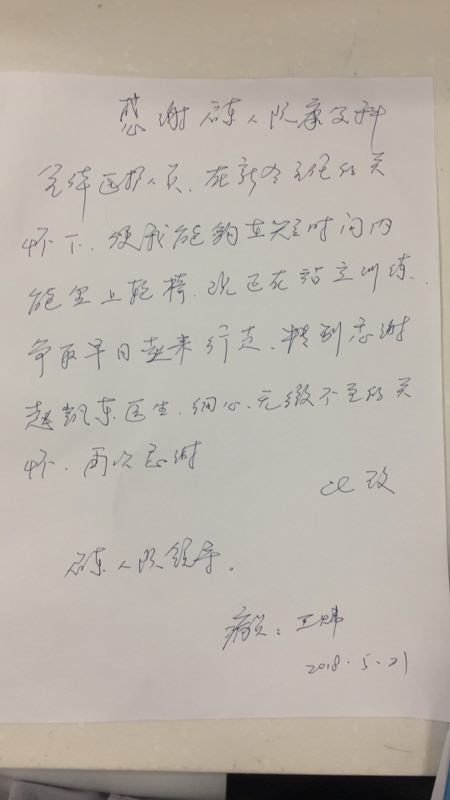 感谢 人院康复科
全体医护人员、在靳令主任的关
怀下、使我能够在短时间内
能坐上轮椅、现正在站立训练、
争取早日起来行走、特别感谢
赵凯东医生、细心、无微不至的关
怀、再次感谢
此致
人院领导。
病员：王
2018.5.21